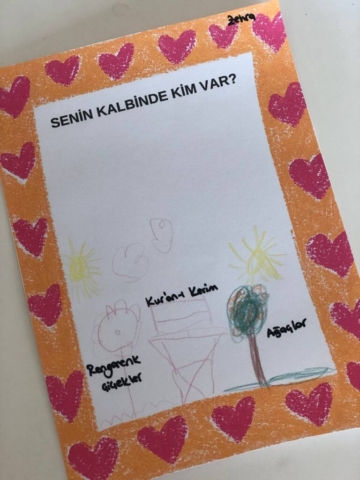 Zehra
SENİN KALBİNDE KİM VAR?
Kur'an-ı Kerim
Rengarenk
çiçekler
Ağaçlar